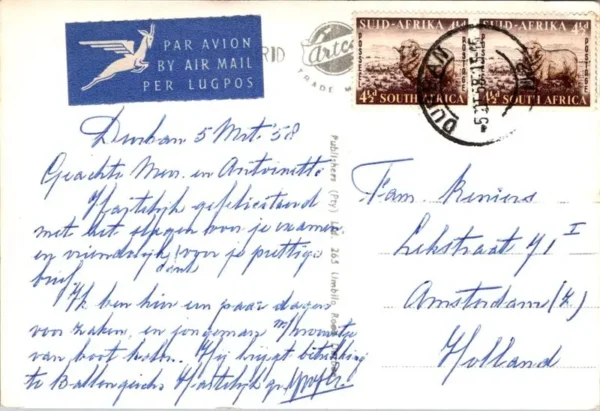 PAR AVION
BY AIR MAIL
PER LUGPOS
RID
Artco
TRADE M
SUID-AFRIKA 4½d
POSSEEL
POSTAGE
4½d SOUTH AFRICA
SUID-AFRIKA 4½d
POSTAGE
4½d SOUTH AFRICA
DURBAN
Durban 5 Mrt. '58
Geachte Mevr. en Antoinette
Hartelijk gefeliciteerd
met het slagen voor je examen
en vriendelijk dank voor je prettige
brief
Ik ben hier een paar dagen
voor zaken, en jongeman
van boot halen. Hij krijgt
te Hartelijk
Publishers (Pty) Ltd. 265 Umbilo Road
Fam. Reniers
Lekstraat 71 I
Amsterdam (Z.)
Holland